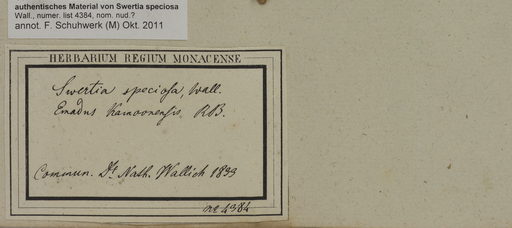 authentisches Material von Swertia speciosa
Wall., numer. list 4384, nom. nud.?
annot. F. Schuhwerk (M) Okt. 2011
HERBARIUM REGIUM MONACENSE
Swertia speciosa, Wall.
Emodus Kamoonensis. RB.
Commun. Dr. Nath. Wallich 1833
nr 4384